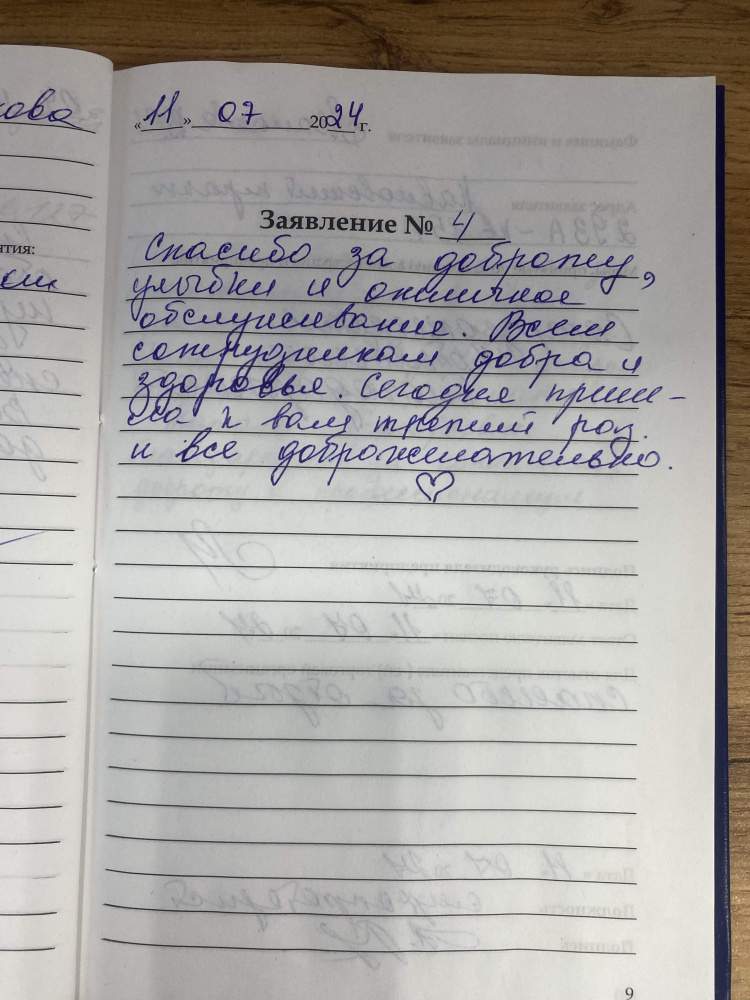 кова
«11» 07 2024 г.
Заявление № 4
Спасибо за доброту,
улыбки и отличное
обслуживание. Всем
сотрудникам добра и
здоровья. Сегодня приш-
ла к вам третий раз.
и все доброжелательно.
ятия:
9